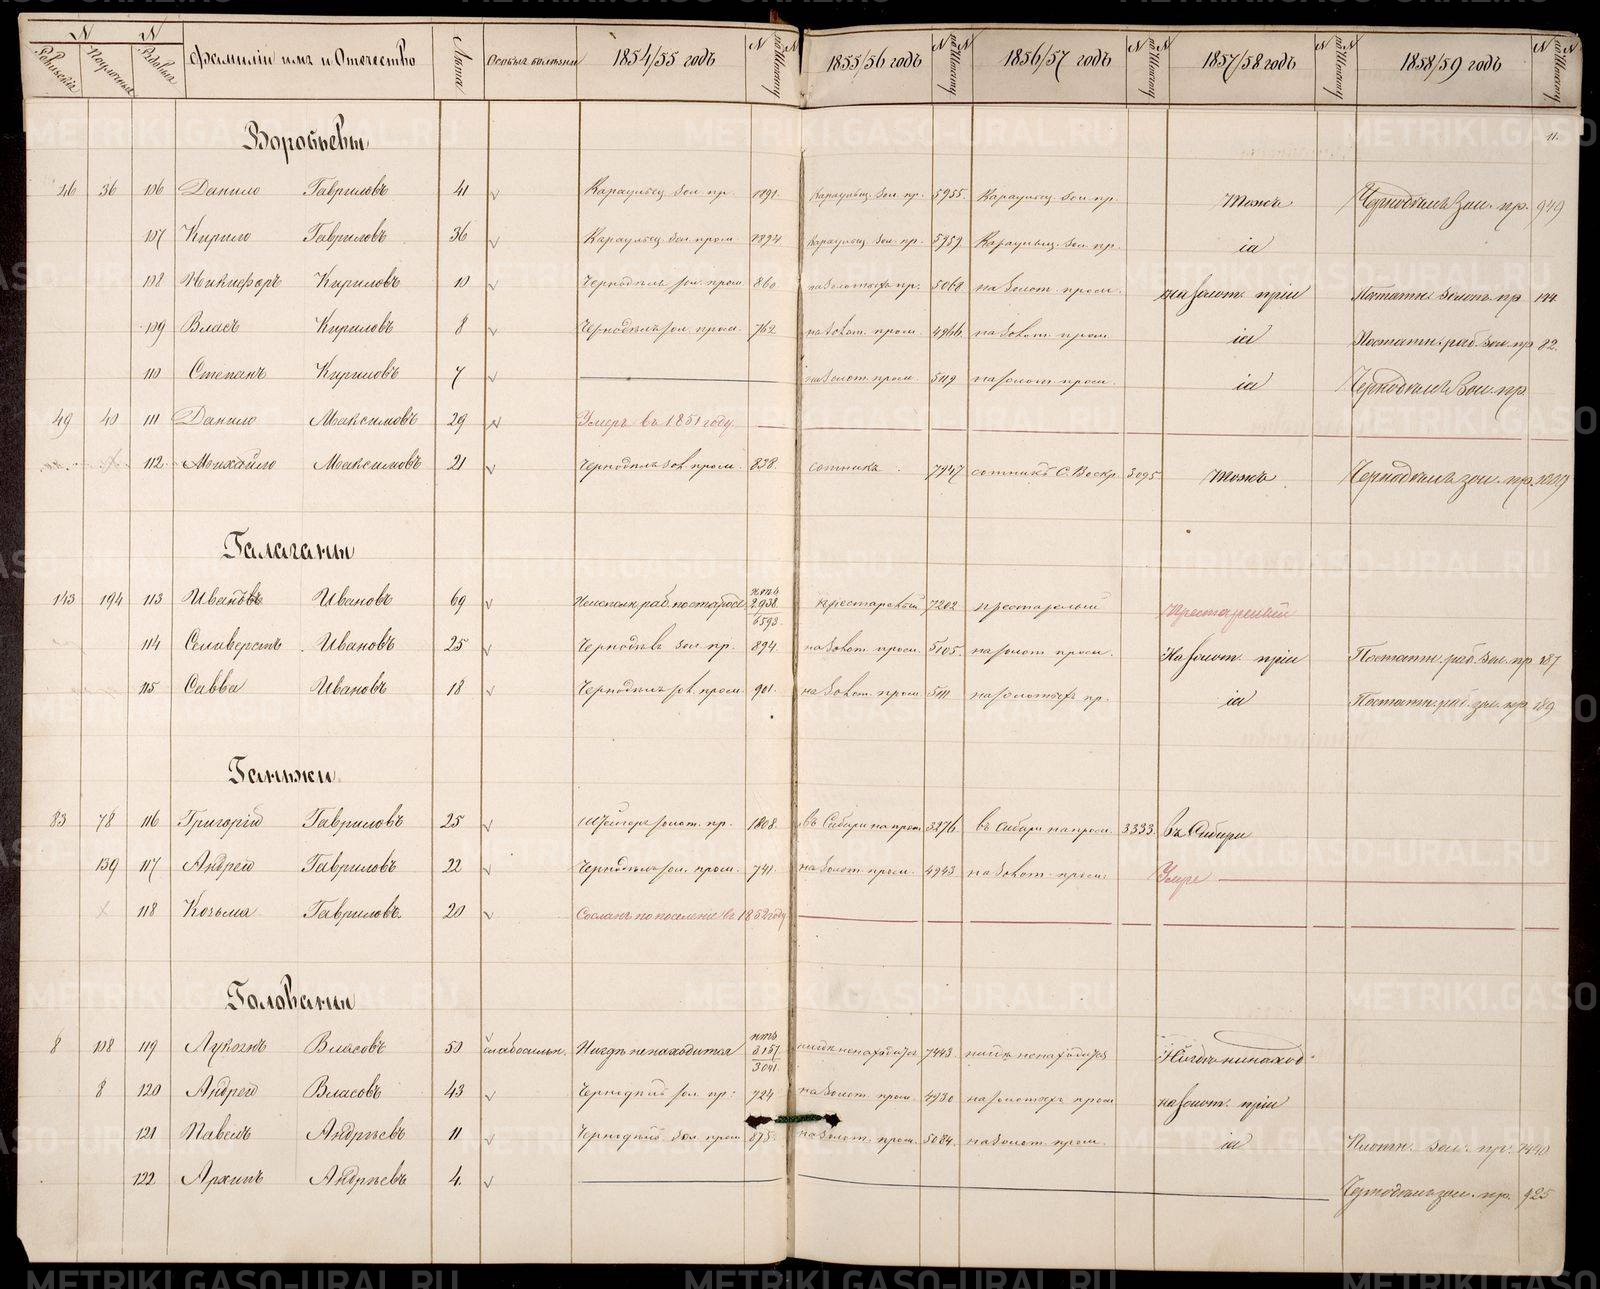 N N
Ревизскія Посемейныя Рядовыя Фамиліи имя и Отечество Лѣта Особыя болѣзни 1854/55 годъ 1855/56 годъ 1856/57 годъ 1857/58 годъ 1858/59 годъ
11.
Воробьевы
26 36 106 Данило Гавриловъ 41 Караульщ. зол. пр. 1891 Караульщ. зол. пр. 5955 Караульщ. зол. пр. Тожъ Чернодѣлъ зол. пр. 949
107 Кирило Гавриловъ 36 Караульщ. зол. пром. 1894 Караульщ. зол. пр. 5959 Караульщ. зол. пр. іа
108 Никифоръ Кириловъ 10 Чернодѣлъ зол. пром. 860 на золотыхъ пр. 5068 на золот. пром. на золот. пріи Постатн. золот. пр. 144
109 Власъ Кириловъ 8 Чернодѣлъ зол. пром. 762 на золот. пром. 4966 на золот. пром. іа Постатн. раб. зол. пр. 82.
110 Степанъ Кириловъ 7 на золот. пром. 5119 на золот. пром. іа Чернодѣлъ зол. пр.
49 40 111 Данило Максимовъ 29 Умеръ въ 1851 году
112 Михайло Максимовъ 21 Чернодѣлъ зол. пром. 838. сотникъ 7747 сотникъ С. Воскр. 3095 Тожъ Чернодѣлъ зол. пр. 1029
Галаганы
143 194 113 Ивановъ Ивановъ 69 Неисполн. раб. по старости 2938 6593 престарелый 7202 престарелый Престарелый
114 Селиверстъ Ивановъ 25 Чернодѣл. зол. пр. 894 на золот. пром. 5105. на золот. пром. На золот. пріи Постатн. раб. зол. пр. 187
115 Савва Ивановъ 18 Чернодѣлъ зол. пром. 901. на золот. пром. 5111 на золотыхъ пр. іа Постатн. раб. зол. пр. 189
Ганьжи
83 78 116 Григорій Гавриловъ 25 Штейгеръ золот. пр. 1808. въ Сибири на пром. 3276 въ Сибири на пром. 3333. въ Сибири
139 117 Андрей Гавриловъ 22 Чернодѣлъ зол. пром. 741. на золот. пром. 4943 на золот. пром. Умре
118 Козьма Гавриловъ. 20 Сосланъ на поселеніе въ 1852 году
Голованы
8 108 119 Лукоянъ Власовъ 50 слабосильн. Нигдѣ не находится 3157 3041 нигдѣ не находится 7443 нигдѣ не находится Нигдѣ ненаход.
8 120 Андрей Власовъ 43 Чернодѣлъ зол. пр. 724 на золот. пром. 4930 на золотыхъ пром. на золот. пріи
121 Павелъ Андреевъ 11 Чернодѣлъ зол. пром. 875. на золот. пром. 5084. на золот. пром. іа Плотн. зол. пр. 7490
122 Архипъ Андреевъ 4. Чернодѣлъ зол. пр. 925
METRIKI.GASO-URAL.RU